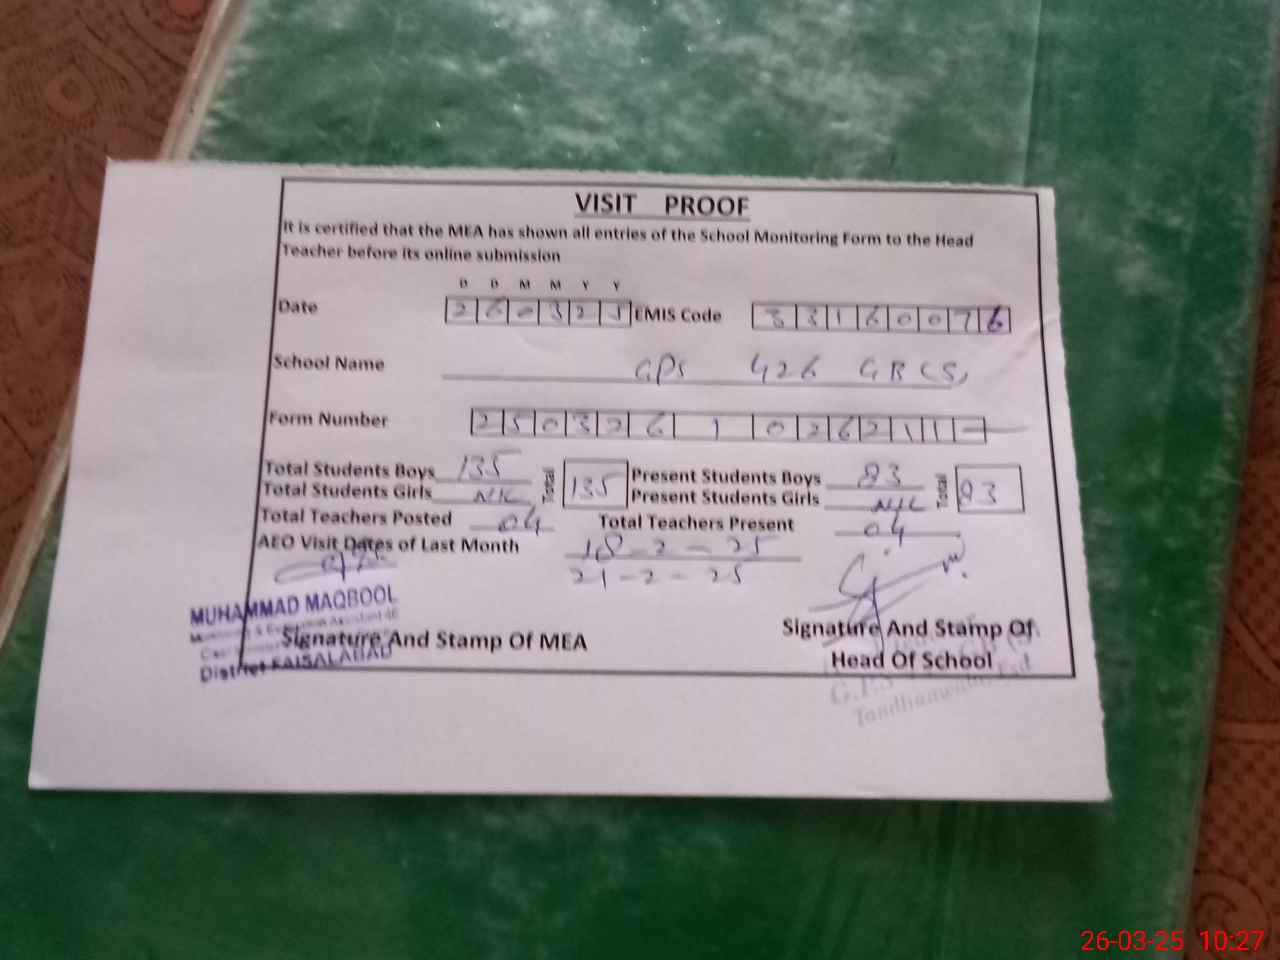 VISIT PROOF
It is certified that the MEA has shown all entries of the School Monitoring Form to the Head
Teacher before its online submission
D D M M Y Y
Date 2 6 0 3 2 5 EMIS Code 3 3 1 6 0 0 7 6
School Name GPS 426 GB
Form Number 2 5 0 3 2 6 1 0 2 6 2 1 1 -
Total Students Boys 135 Total 135 Present Students Boys 83 Total 83
Total Students Girls NIL Present Students Girls NIL
Total Teachers Posted 04 Total Teachers Present 04
AEO Visit Dates of Last Month 18-2-25
21-2-25
MUHAMMAD MAQBOOL
District FAISALABAD
Signature And Stamp Of MEA
Signature And Stamp Of
Head Of School
G.P.S
26-03-25 10:27